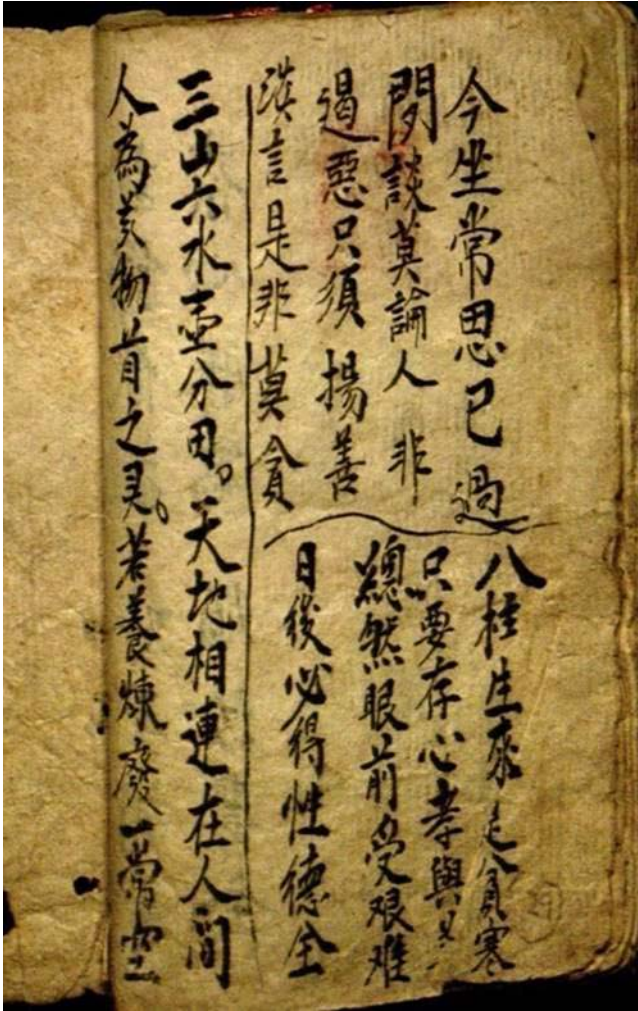 今坐常思已過
閒談莫論人非
遏惡只須揚善
言是非莫貪
八桂生來是貧寒
只要存心孝與
總然眼前受艱难
日後必得性德全
三山六水壹分田。天地相連在人間
人為万物首之灵。若養煉廢一常空